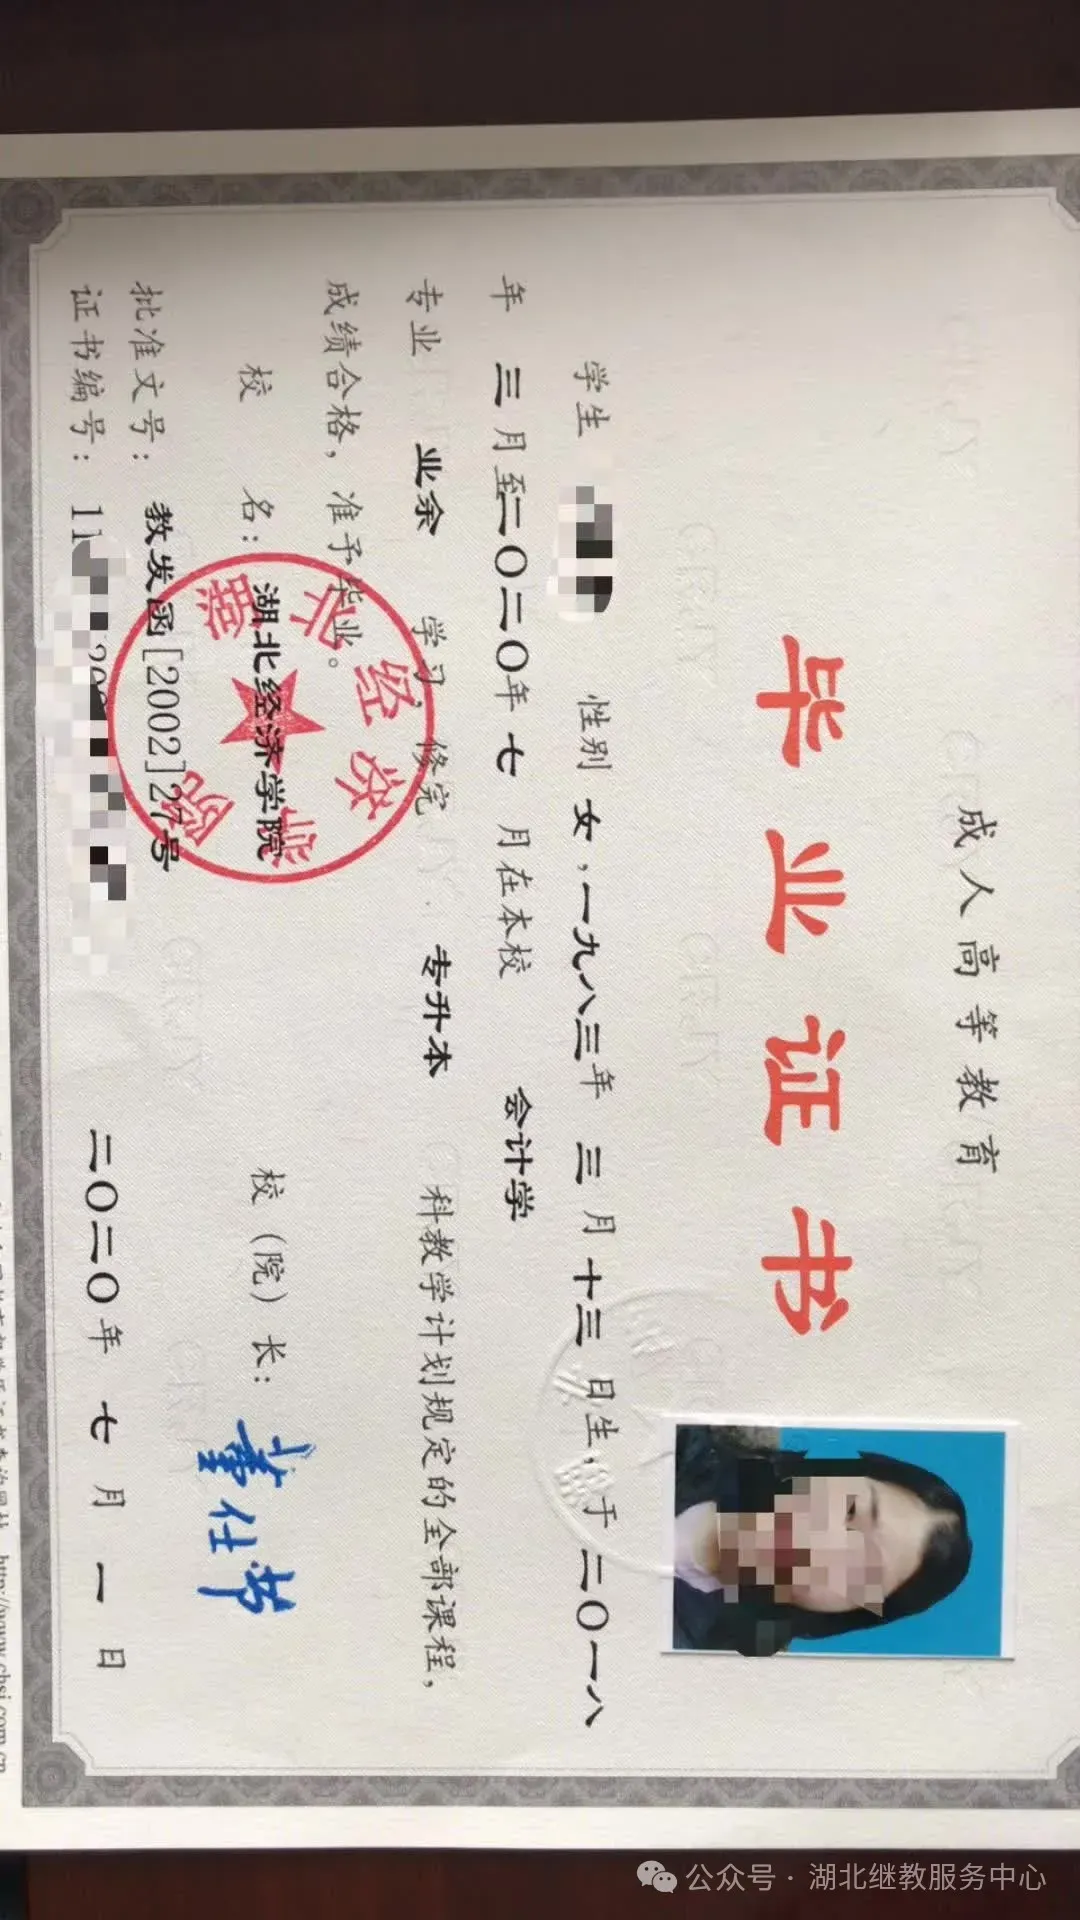 成人高等教育
毕业证书
学生 性别 女,一九八三年 三 月 十三 日生,于 二〇一八
年 三 月至二〇二〇年 七 月在本校 会计学
专业 业余 学习,修完 专升本 科教学计划规定的全部课程,
成绩合格,准予毕业。
校 名: 湖北经济学院 校(院)长: 董仕节
批准文号: 教发函[2002]27号
证书编号: 11 二〇二〇年 七 月 一 日
http://www.chsi.com.cn
公众号 · 湖北继教服务中心